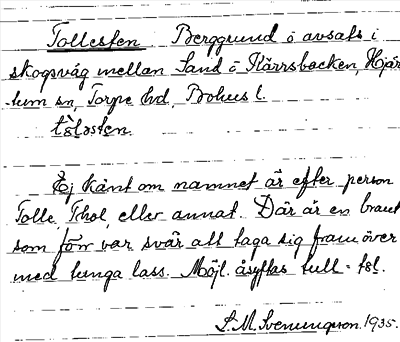 Tollesten Berggrund o avsats i
skogsväg mellan Sand o Kärrsbacken, Hjär-
tum sn, Torpe hd, Bohus l.
tòləsten.
Ej känt om namnet är efter person
Tolle, Thol, eller annat. Där är en brant
som förr var svår att taga sig fram över
med tunga lass. Möjl. åsyftas tull = tǫl.
S. M. Svenungsson. 1935.